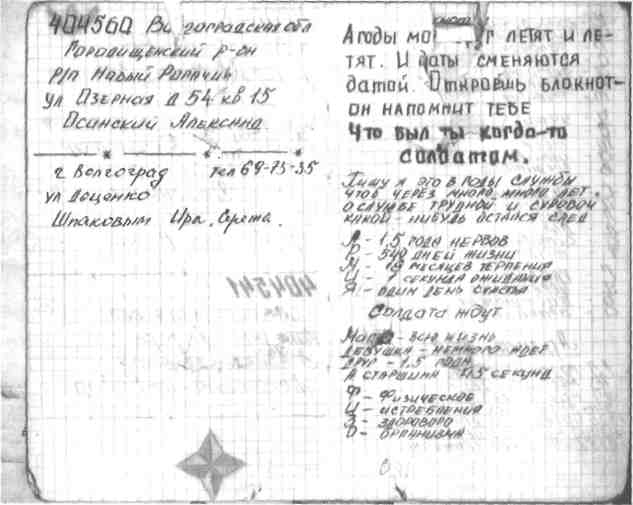 404560 Волгоградская обл
Городищенский р-он
Р/п Новый Рогачик
ул Озерная д 54 кв 15
Осинский Александр
г Волгоград тел 69-73-35
ул Доценко
Шпаковым Ира, Сережа.
404541
А годы мо г летят и ле-
тят. И даты сменяются
датой. Откроешь блокнот-
он напомнит тебе
Что был ты когда-то
солдатом.
Пишу я это в годы службы
чтоб через много, много лет.
О службе трудной и суровой
какой-нибудь остался след
А - 1,5 года нервов
Р - 540 дней жизни
М - 18 месяцев терпения
И - 1 секунда ожидания
Я - один день счастья
Солдата ждут
Мать - всю жизнь
Девушка - немного ждет
Друг - 1,5 года
А старшина 45 секунд
Ф - Физическое
И - истребление
З - здорового
О - организма